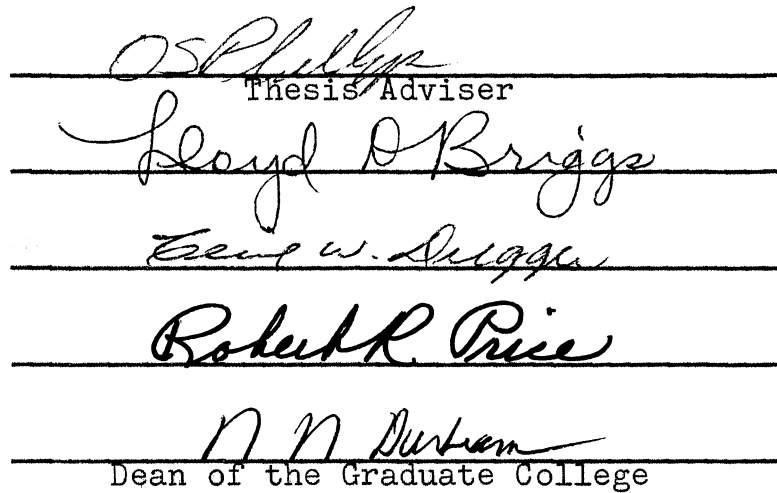 OS Phillips
Thesis Adviser
Lloyd D Briggs
Gene W. Dugger
Robert R. Price
N N Durham
Dean of the Graduate College